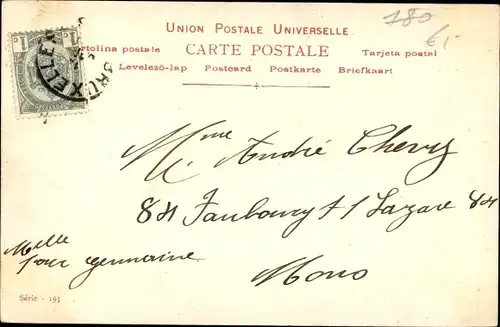 180
€,-
UNION POSTALE UNIVERSELLE
Cartolina postale CARTE POSTALE Tarjeta postal
Levelező-lap Postcard Postkarte Briefkaart
1 1
BRUXELLES
Mme
André Chevy
84 Faubourg St Lazare 84
Mons
Melle
Pour germaine
Série - 195